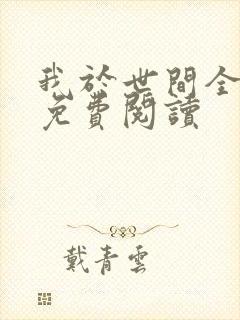 我於世間全
免費閱讀
戴青雲